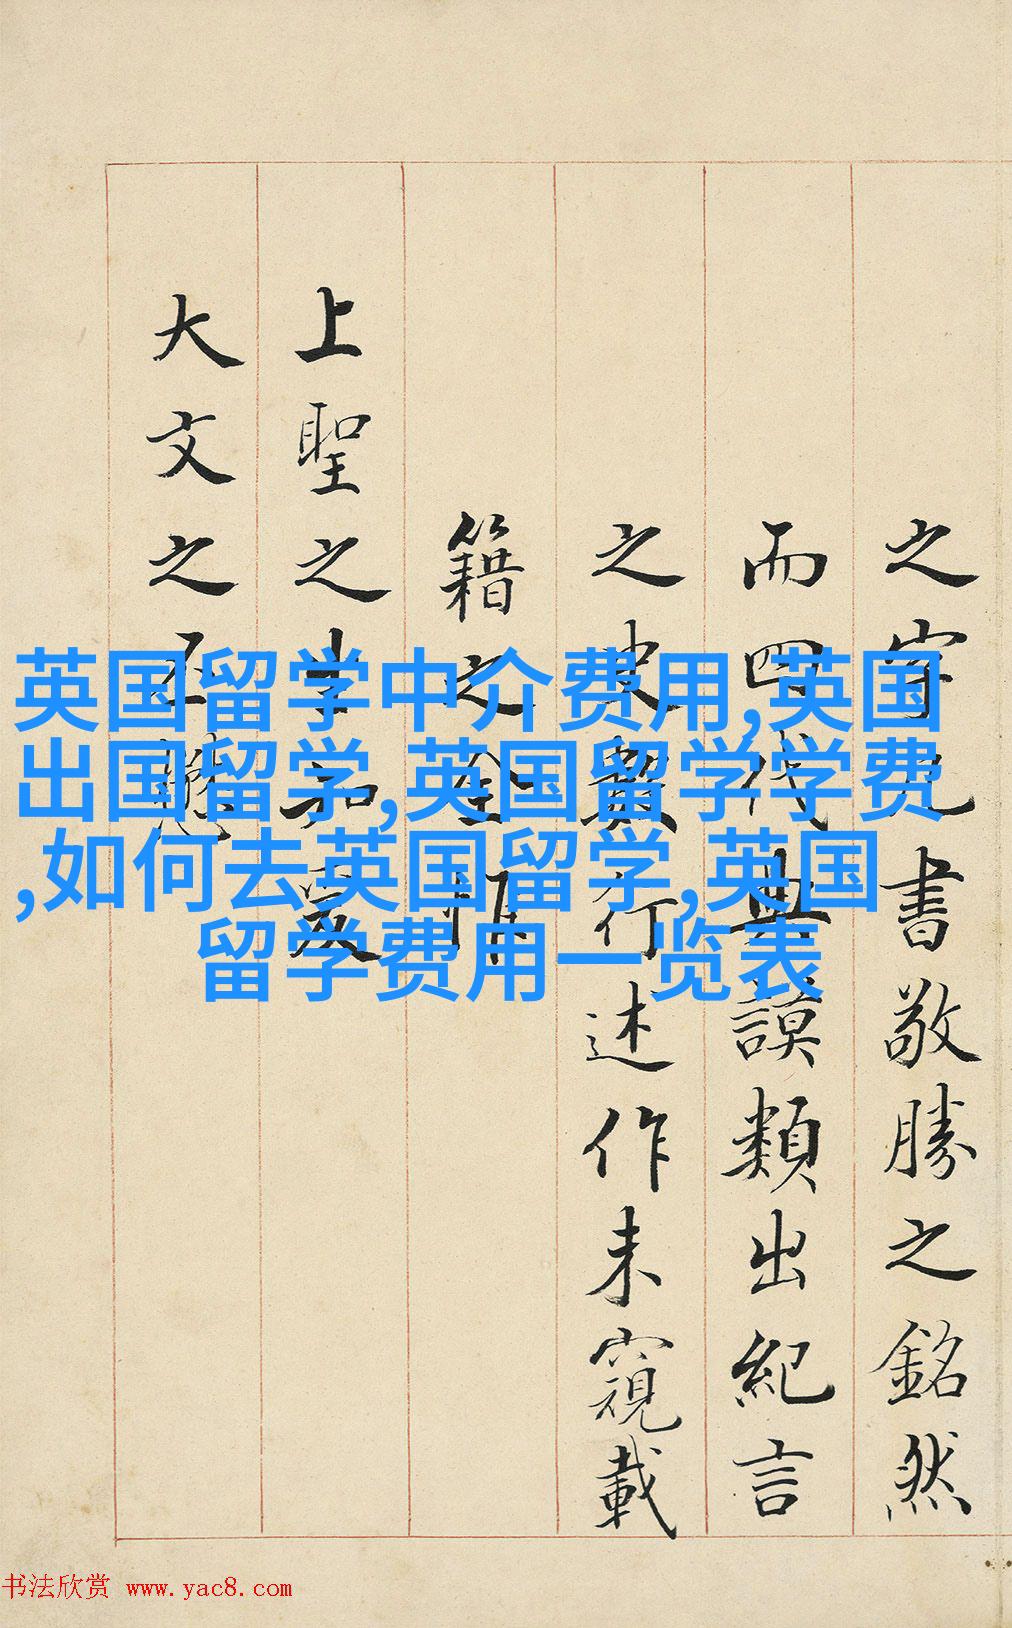 之書敬勝之銘然
而四代典謨類出紀言
之史行述作未窺載
籍之全
上聖之
大文之
英国留学中介费用,英国
出国留学,英国留学学费
,如何去英国留学,英国
留学费用一览表
书法欣赏 www.yac8.com